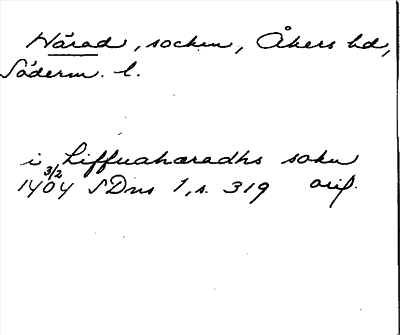 Härad, socken, Åkers hd,
Söderm. l.
i Liffuahæradhs sokn
3/2
1404 SDns 1, s. 319 orig.